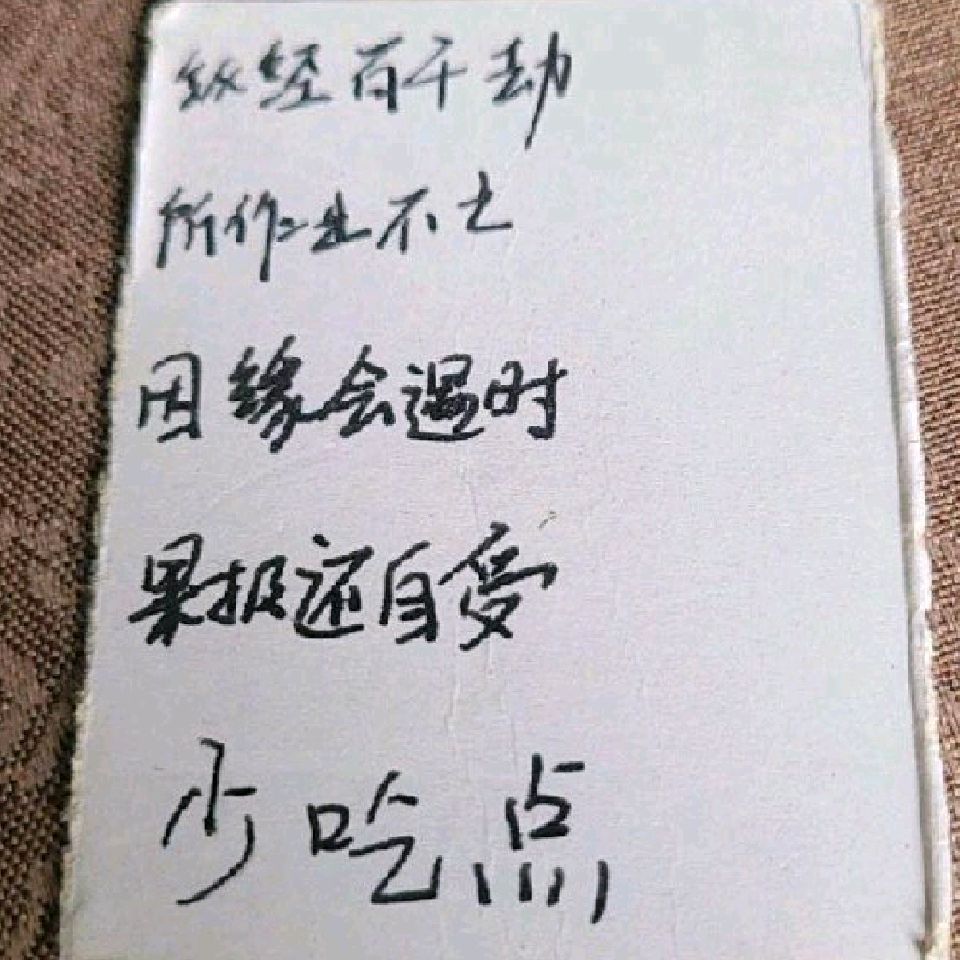 纵经百千劫
所作业不亡
因缘会遇时
果报还自受
少吃点